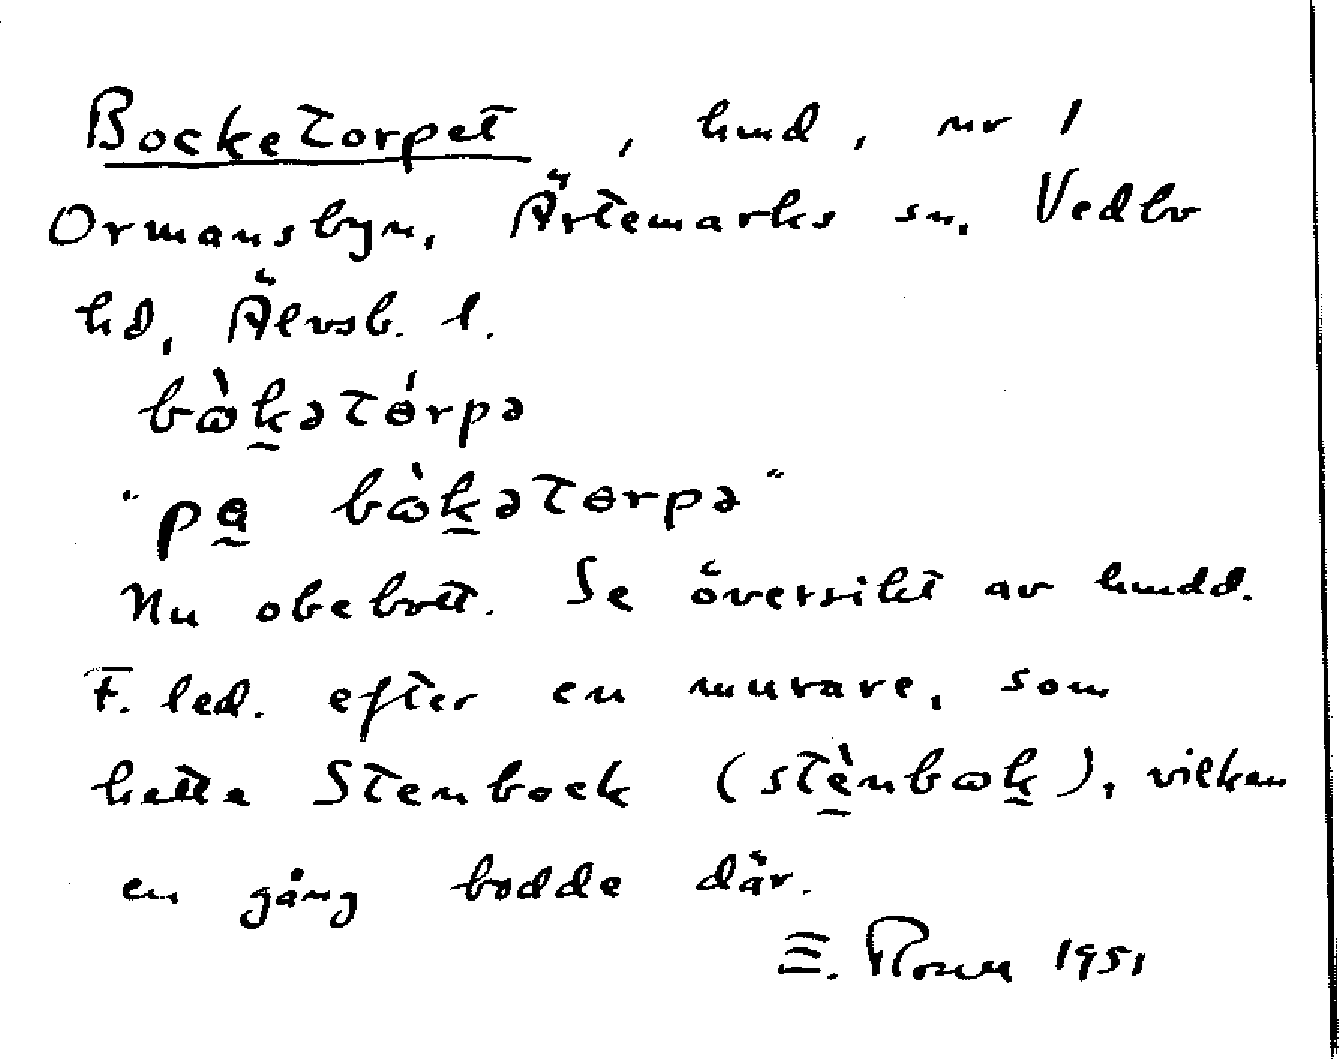 Bocketorpet, hmd, nr 1
Ormansbyn, Ärtemarks sn, Vedbo
hd, Älvsb. l.
bὼk̠ətɵ́rpə
"pa̠ bὼk̠ətɵrpə"
Nu obebott. Se översikt av hmdd.
F. led. efter en murare, som
hette Stenbock (stè̠nbωk̠), vilken
en gång bodde där.
E. Rosen 1951